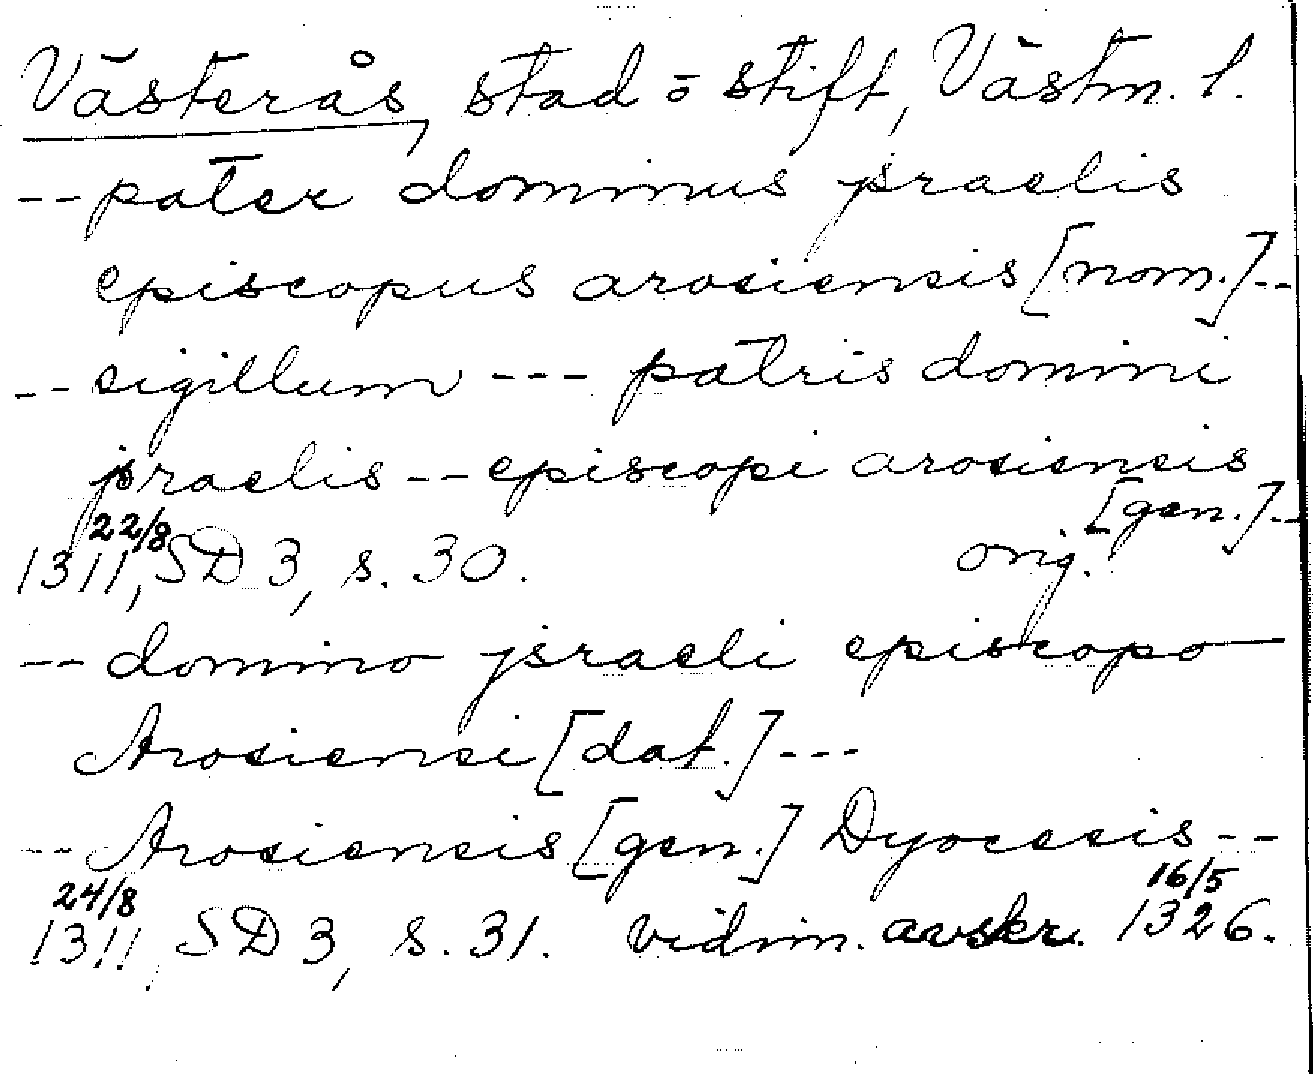 Västerås, stad o stift, Västm. l.
-- pater dominus jsraelis
episcopus arosiensis [nom.] --
-- sigillum --- patris domini
jsraelis -- episcopi arosiensis
[gen.] --
22/8
1311, SD 3, s. 30. orig.
-- domino jsraeli episcopo
Arosiensi [dat.] ---
-- Arosiensis [gen.] Dyocesis --
24/8 16/5
1311, SD 3, s. 31. vidim. avskr. 1326.